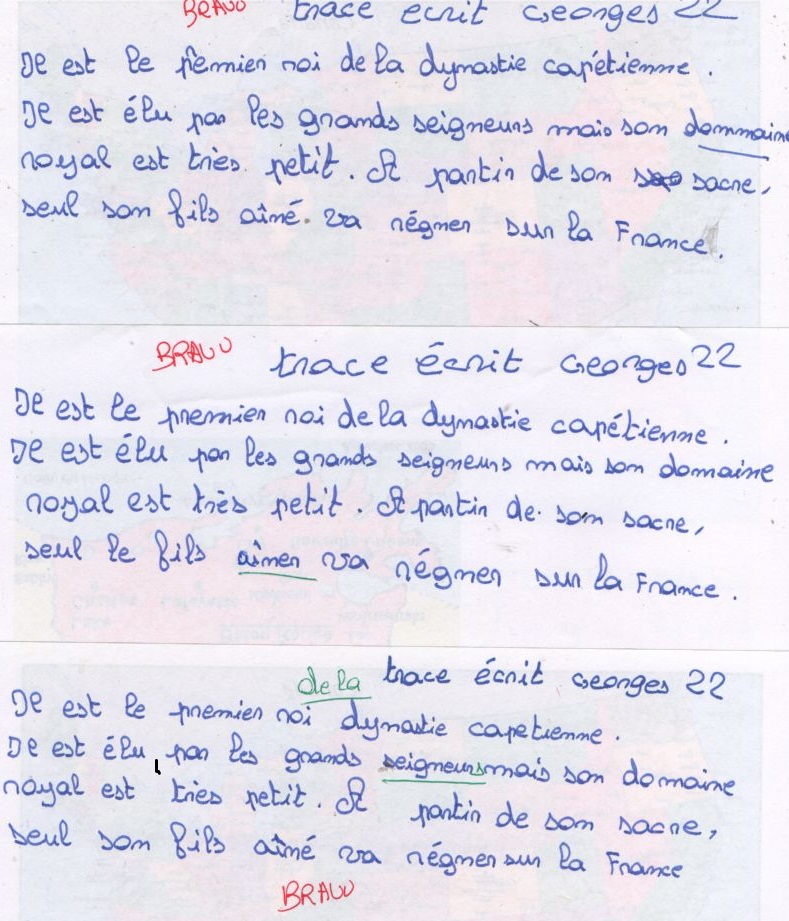 BRAVO trace ecrit Georges 22
Il est le premier roi de la dynastie capétienne.
Il est élu par les grands seigneurs mais son dommaine
royal est très petit. A partir de son sacre,
seul son fils aîné. va régner sur la France.
BRAVO trace écrit Georges 22
Il est le premier roi de la dynastie capétienne.
Il est élu par les grands seigneurs mais son domaine
royal est très petit. A partir de son sacre,
seul le fils aîner va régner sur la France.
de la trace écrit Georges 22
Il est le premier roi dynastie capetienne.
Il est élu par les grands seigneurs mais son domaine
royal est très petit. A partir de son sacre,
seul son fils aîné va régner sur la France
BRAVO